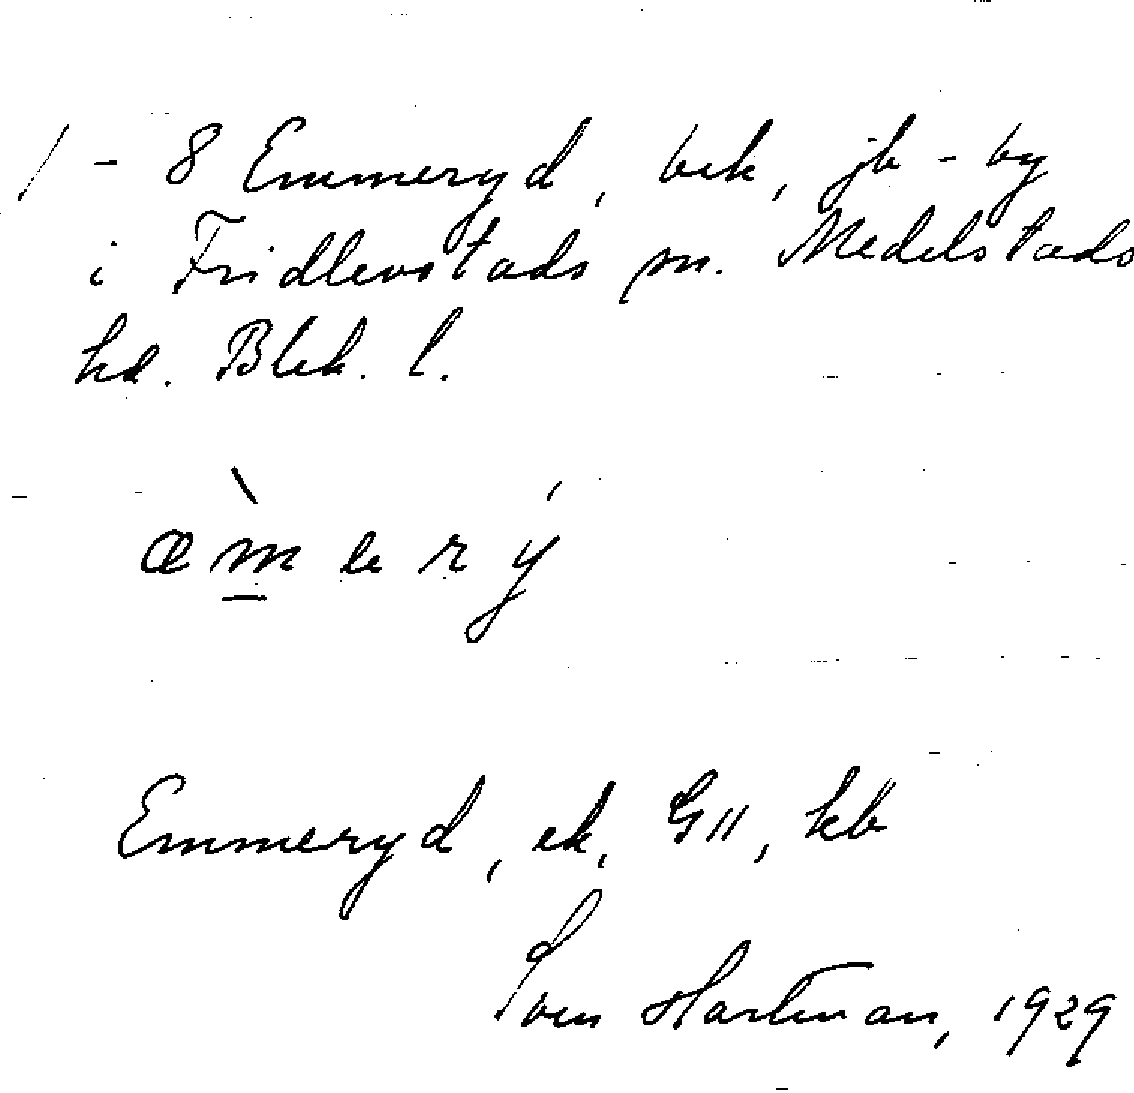 1 - 8 Emmeryd, bek, jb - by
i Fridlevstads sn. Medelstads
hd. Blek. l.
æ̀m e r ý
Emmeryd, ek, GII, kb
Sven Hartman, 1929